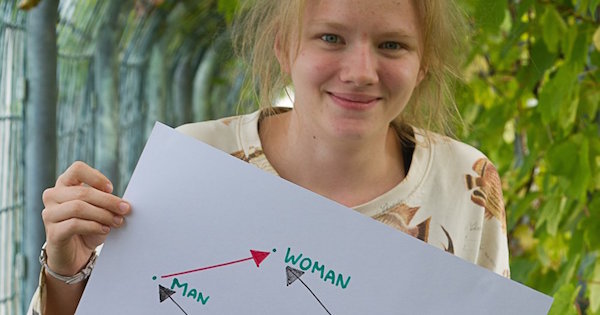 WOMAN
MAN